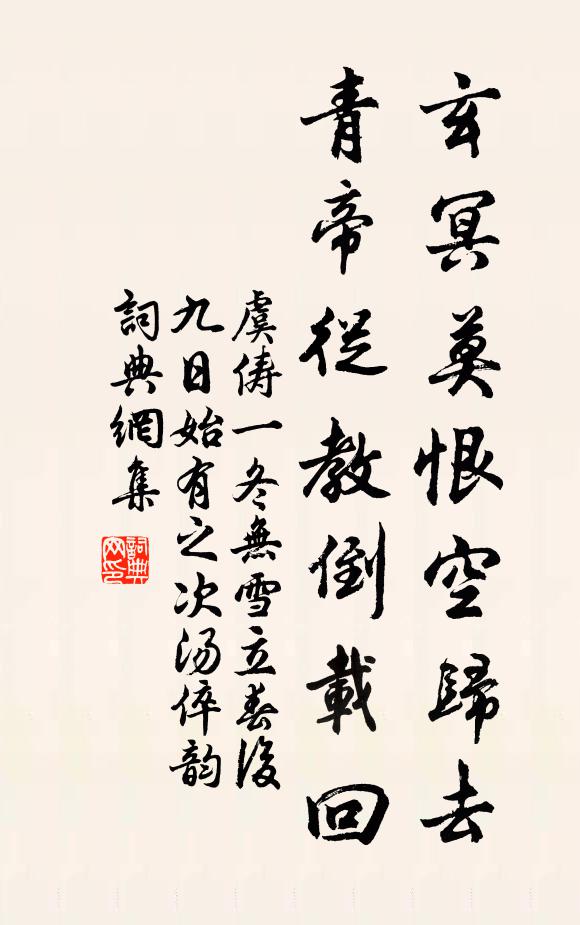 玄冥莫恨空歸去
青帝從教倒載回
虞儔一冬無雪立春後
九日始有之次湯倅韵
詞典網集
詞典
网印